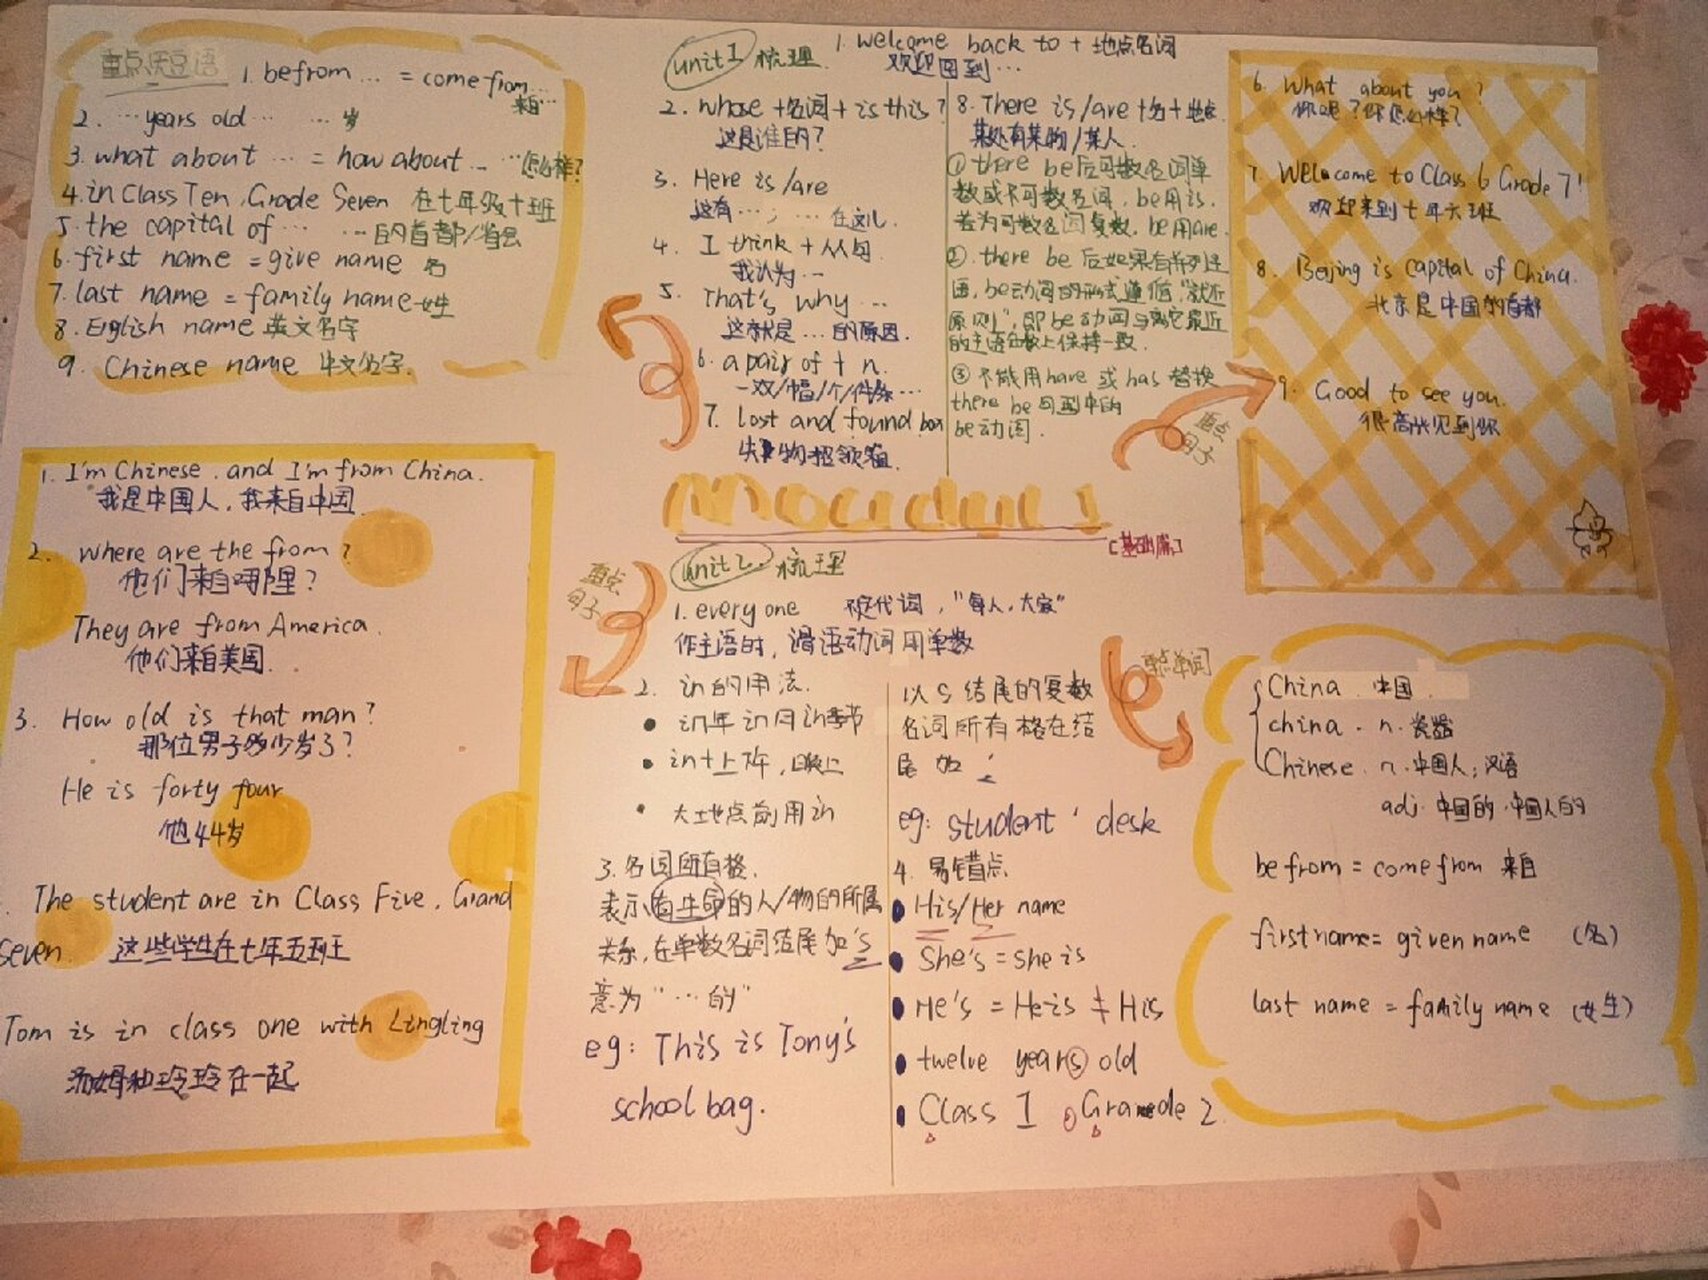 重点短语
1. be from … = come from …
来自…
2. … years old … … 岁
3. what about … = how about … …怎么样?
4. in Class Ten, Grade Seven 在七年级十班
5. the capital of … …的首都/省会
6. first name = give name 名
7. last name = family name 姓
8. English name 英文名字
9. Chinese name 中文名字.
unit1 梳理
1. welcome back to + 地点名词
欢迎回到…
2. whose +名词+ is this?
这是谁的?
3. Here is /are
这有…; … 在这儿.
4. I think + 从句
我认为…
5. That's why …
这就是 … 的原因.
6. a pair of + n.
一双/幅/个/件条…
7. lost and found box
失物招领箱.
8. There is /are +名+地点
某处有某物/某人.
① there be后可数名词单
数或不可数名词, be用is.
若为可数名词复数, be用are.
②. there be 后如果有并列主
语, be动词的形式遵循"就近
原则", 即be动词与离它最近
的主语在数上保持一致.
③ 不能用have 或 has 替换
there be 句型中的
be动词.
重点
句子
6. What about you?
你呢?你怎么样?
7. Welcome to Class 6 Grade 7!
欢迎来到七年六班
8. Beijing is capital of China.
北京是中国的首都
9. Good to see you.
很高兴见到你
Moudul 1
[基础篇]
1. I'm Chinese, and I'm from China.
我是中国人, 我来自中国
2. where are the from?
他们来自哪里?
They are from America.
他们来自美国.
3. How old is that man?
那位男子多少岁了?
He is forty four
他44岁
The student are in Class Five, Grand
Seven. 这些学生在七年五班
Tom is in class one with Lingling
汤姆和玲玲在一起
重点
句子
unit2 梳理
1. everyone 不定代词, "每人, 大家"
作主语时, 谓语动词用单数
2. in的用法.
• in年 in月 in季节
• in+上下午, 晚上
• 大地点前用in
3. 名词所有格.
表示有生命的人/物的所属
关系, 在单数名词结尾加's
意为"…的"
eg: This is Tony's
school bag.
以s结尾的复数
名词所有格在结
尾加 '
eg: student ' desk
4. 易错点
• His/Her name
• She's = she is
• He's = He is ≠ His
• twelve years old
• Class 1 , Grade 2
重点单词
China. 中国.
china. n. 瓷器
Chinese. n. 中国人; 汉语
adj. 中国的. 中国人的
be from = come from 来自
first name = given name (名)
last name = family name (姓)